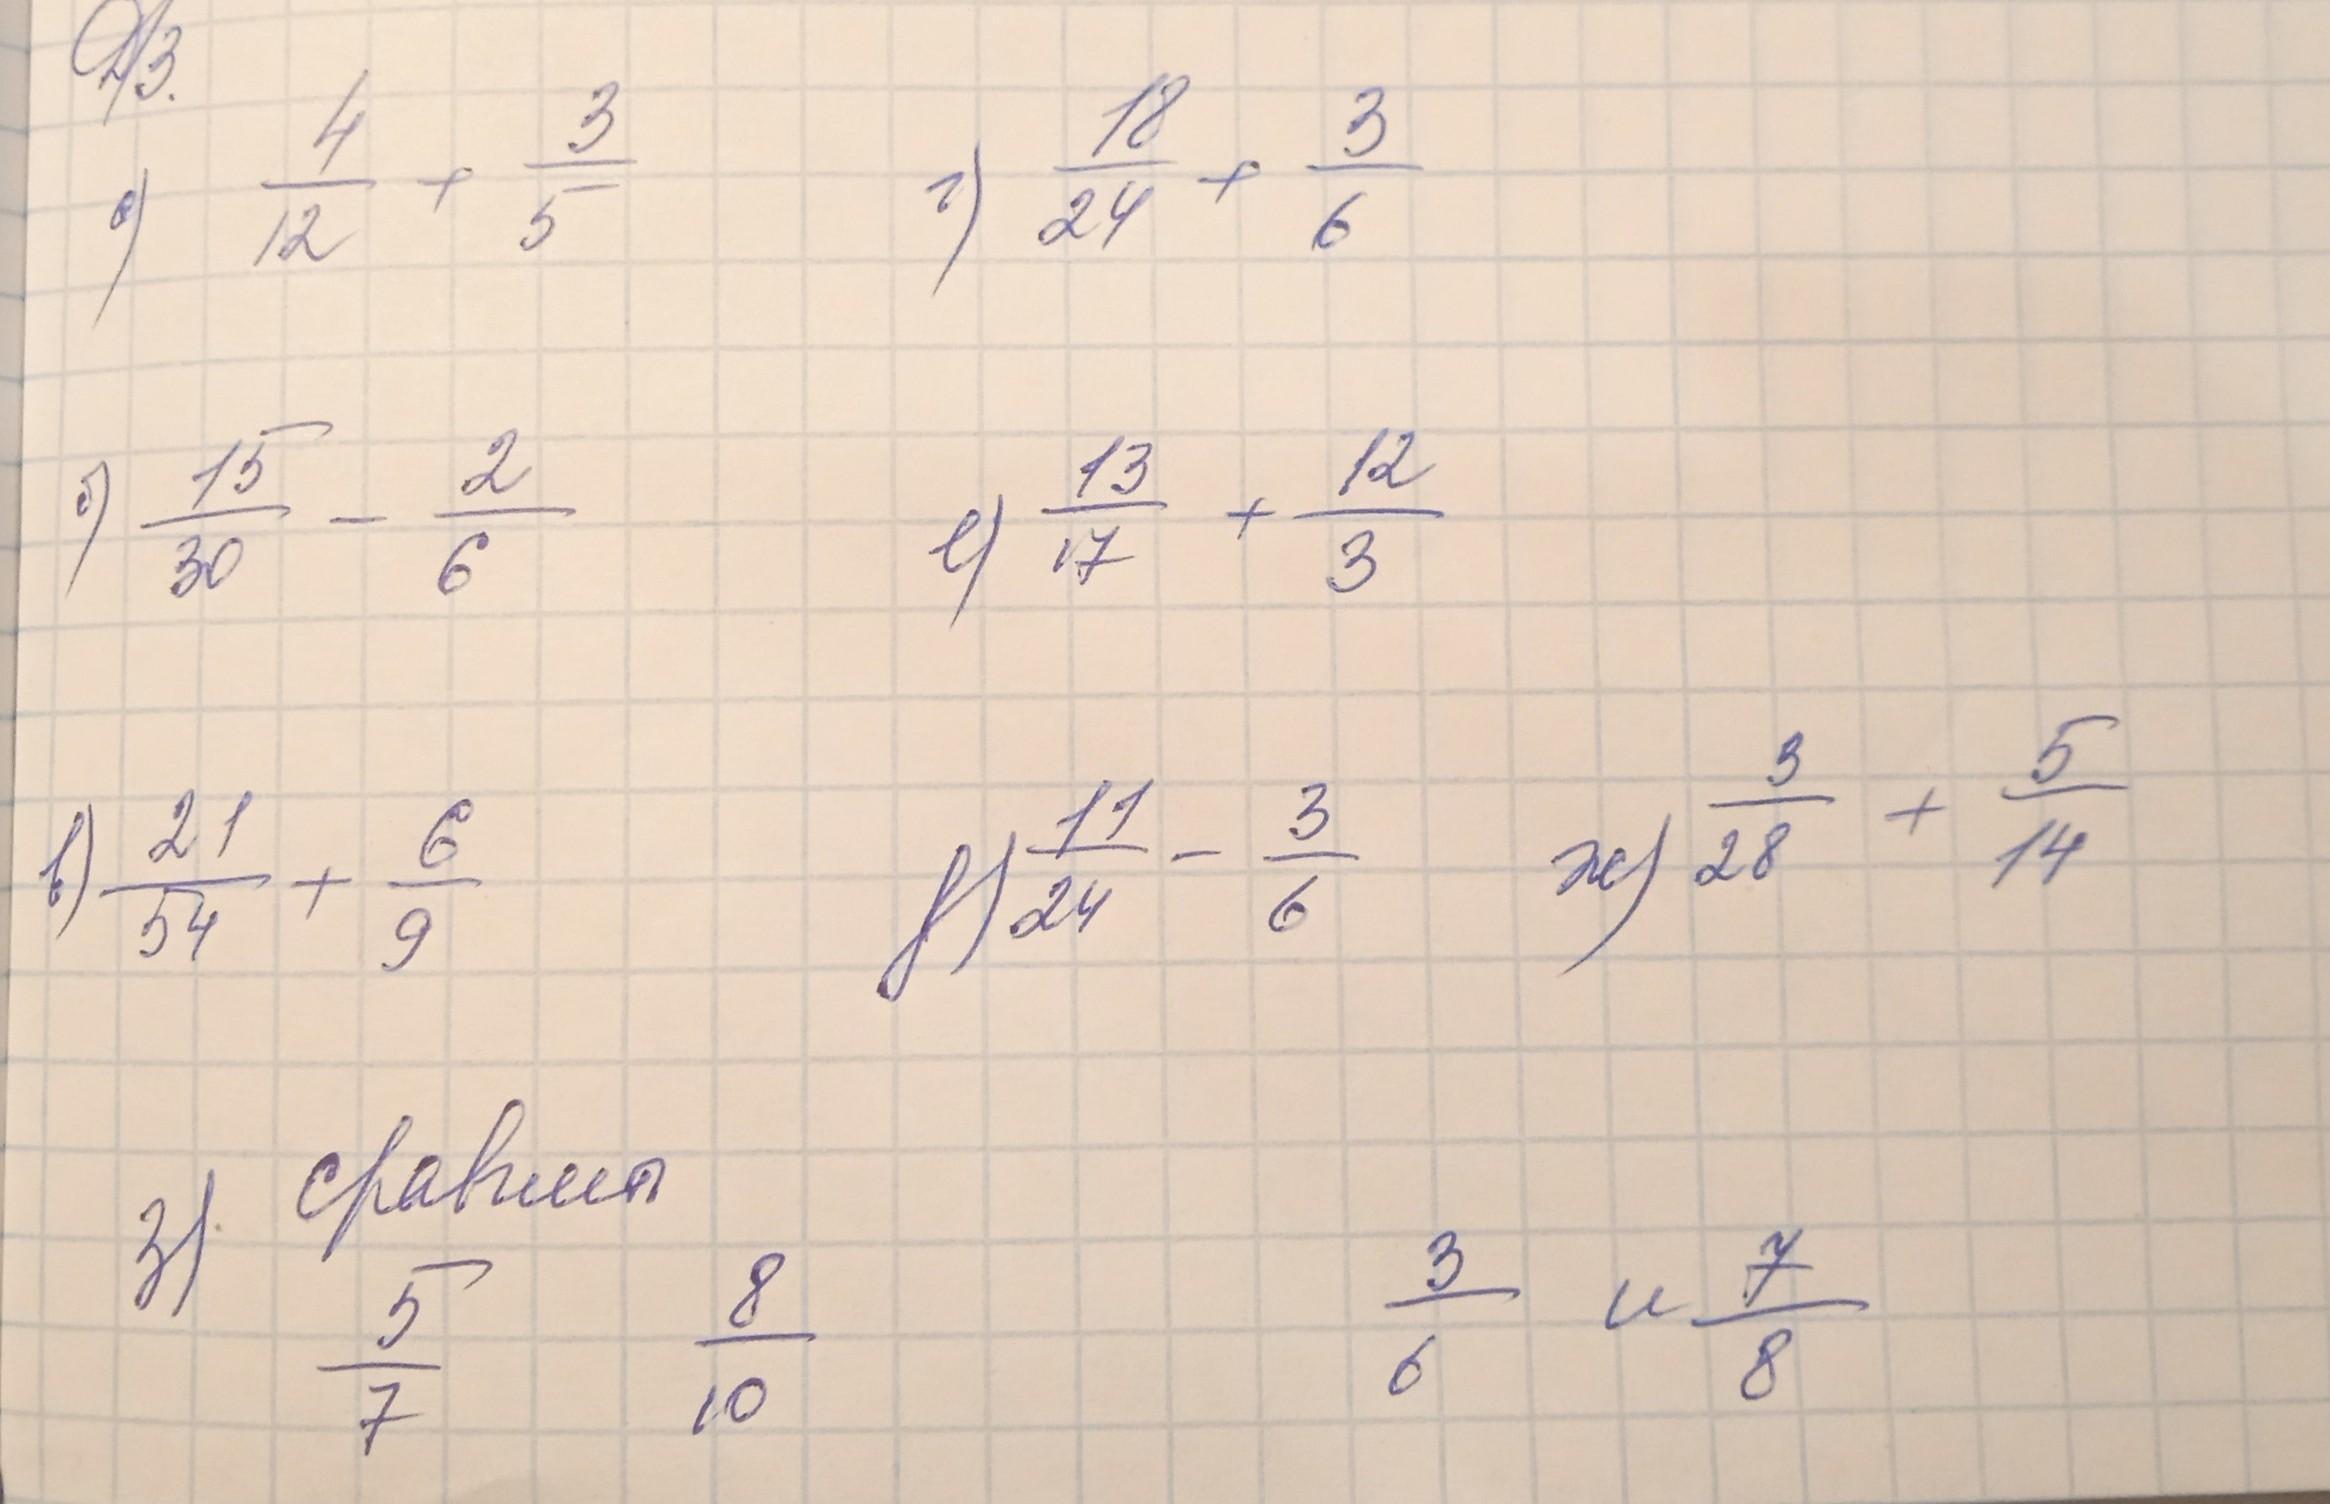 Д/З.
а) 4/12 + 3/5
г) 18/24 + 3/6
б) 15/30 - 2/6
е) 13/17 + 12/3
в) 21/54 + 6/9
д) 11/24 - 3/6
ж) 3/28 + 5/14
з) сравнил
5/7 8/10
3/6 и 7/8